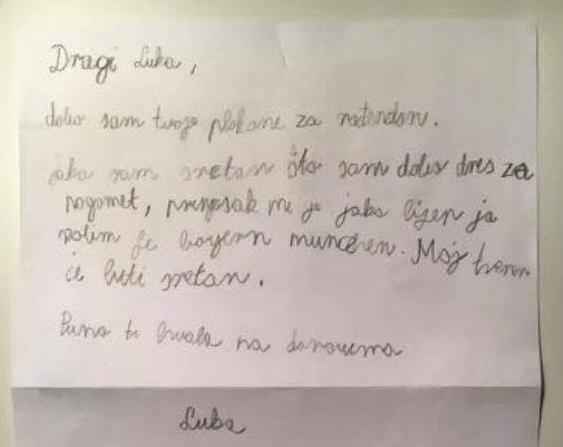 Dragi Luka,
dobio sam tvoje poklone za rođendan.
jako sam sretan što sam dobio dres za
nogomet, privjesak mi je jako lijep ja
volim fc bayern munchen. Moj trener
će biti sretan.
Puno ti hvala na darovima
Luka